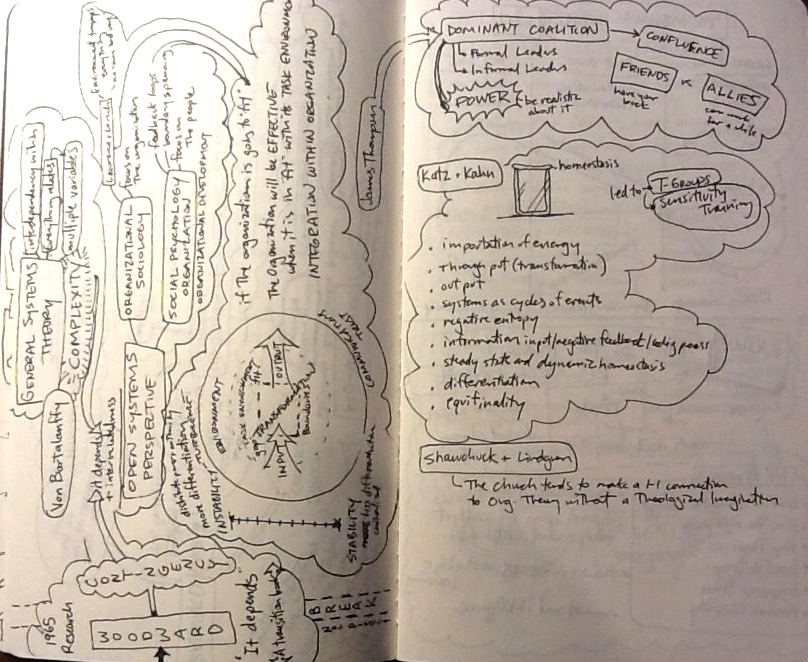 1965
Research
WOODWARD
CONTINGENCY
"It depends"
"A transition book"
BREAK
Von Bertalanffy
GENERAL SYSTEMS
THEORY
interdependency within
Everything relates
COMPLEXITY
multiple variables
it depends
+ interrelatedness
OPEN SYSTEMS
PERSPECTIVE
ORGANIZATIONAL
SOCIOLOGY
focus on
The organization
SOCIAL PSYCHOLOGY
ORGANIZATION
ORGANIZATIONAL DEVELOPMENT
focus on
The people
feedback loops
boundary spanning
more differentiation
INSTABILITY
ENVIRONMENT
TASK ENVIRONMENT
"fit"
INPUT
TRANSFORMATION
OUTPUT
Boundaries
STABILITY
less differentiation
if The organization is going to "fit"
The Organization will be EFFECTIVE
when it is in "fit" with its TASK ENVIRONMENT
INTEGRATION WITHIN ORGANIZATION
James Thompson
DOMINANT COALITION
Formal Leaders
Informal Leaders
POWER
be realistic
about it
CONFLUENCE
FRIENDS
have your
back
vs
ALLIES
can work
for a while
Katz + Kahn
homeostasis
led to
T-GROUPS
Sensitivity
Training
• importation of energy
• Through put (transformation)
• out put
• systems as cycles of events
• negative entropy
• information input/negative feedback/coding process
• steady state and dynamic homeostasis
• differentiation
• equifinality
Shawchuck + Lindgren
The church tends to make a 1-1 connection
to Org. Theory without a Theological Imagination